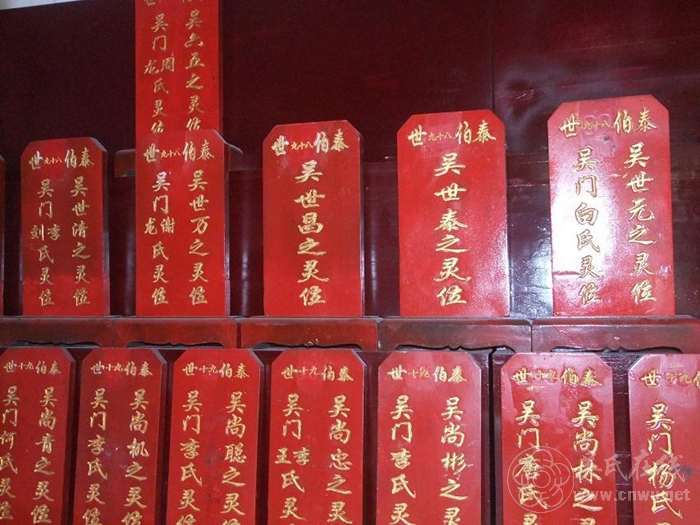 吴六五之灵位
吴门周龙氏灵位
泰伯八十九世
吴世元之灵位
吴门白氏灵位
泰伯八十九世
吴世泰之灵位
泰伯八十九世
吴世昌之灵位
泰伯八十九世
吴世万之灵位
吴门谢龙氏灵位
泰伯八十九世
吴世清之灵位
吴门李刘氏灵位
世
吴门杨氏
泰伯九十世
吴尚林之
吴门唐氏
泰伯九十世
吴尚彬之灵
吴门李氏灵
泰伯九十世
吴尚忠之灵
吴门李王氏灵
泰伯九十世
吴尚聪之灵位
吴门李氏灵位
泰伯九十世
吴尚机之灵位
吴门李氏灵位
泰伯九十世
吴尚青之灵位
吴门何氏灵位
吴氏在线
www.cnwu.net